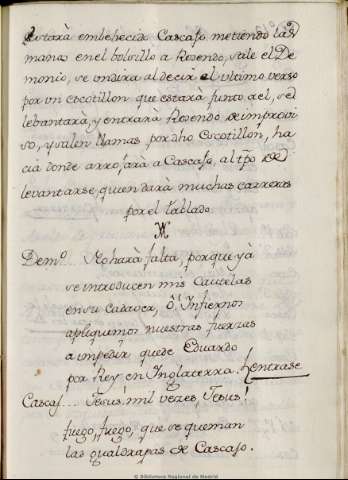 Estarà embebecido Cascajo metiendo las
manos en el bolsillo a Rosendo, sale el De
monio, se undira al decir el ultimo verso
por un escotillon que estarà junto a el, se
levantarà, y entrarà Rosendo de improvi
so, y salen llamas por dho Escotillon, ha
cia donde arrojarà a Cascajo, al tpo de
levantarse, quien darà muchas carreras
por el tablado.
Demº... No harà falta, porque yà
se introducen mis Cautelas
en su Cadaver, ô Infiernos
apliquemos nuestras fuerzas
a impedir quede Eduardo
por Rey en Inglaterra. Entrase
Cascaj.... Jesus! mil vezes, Jesus!
fuego, fuego, que se queman
las gualdrapas de Cascajo.
© Biblioteca Nacional de Madrid